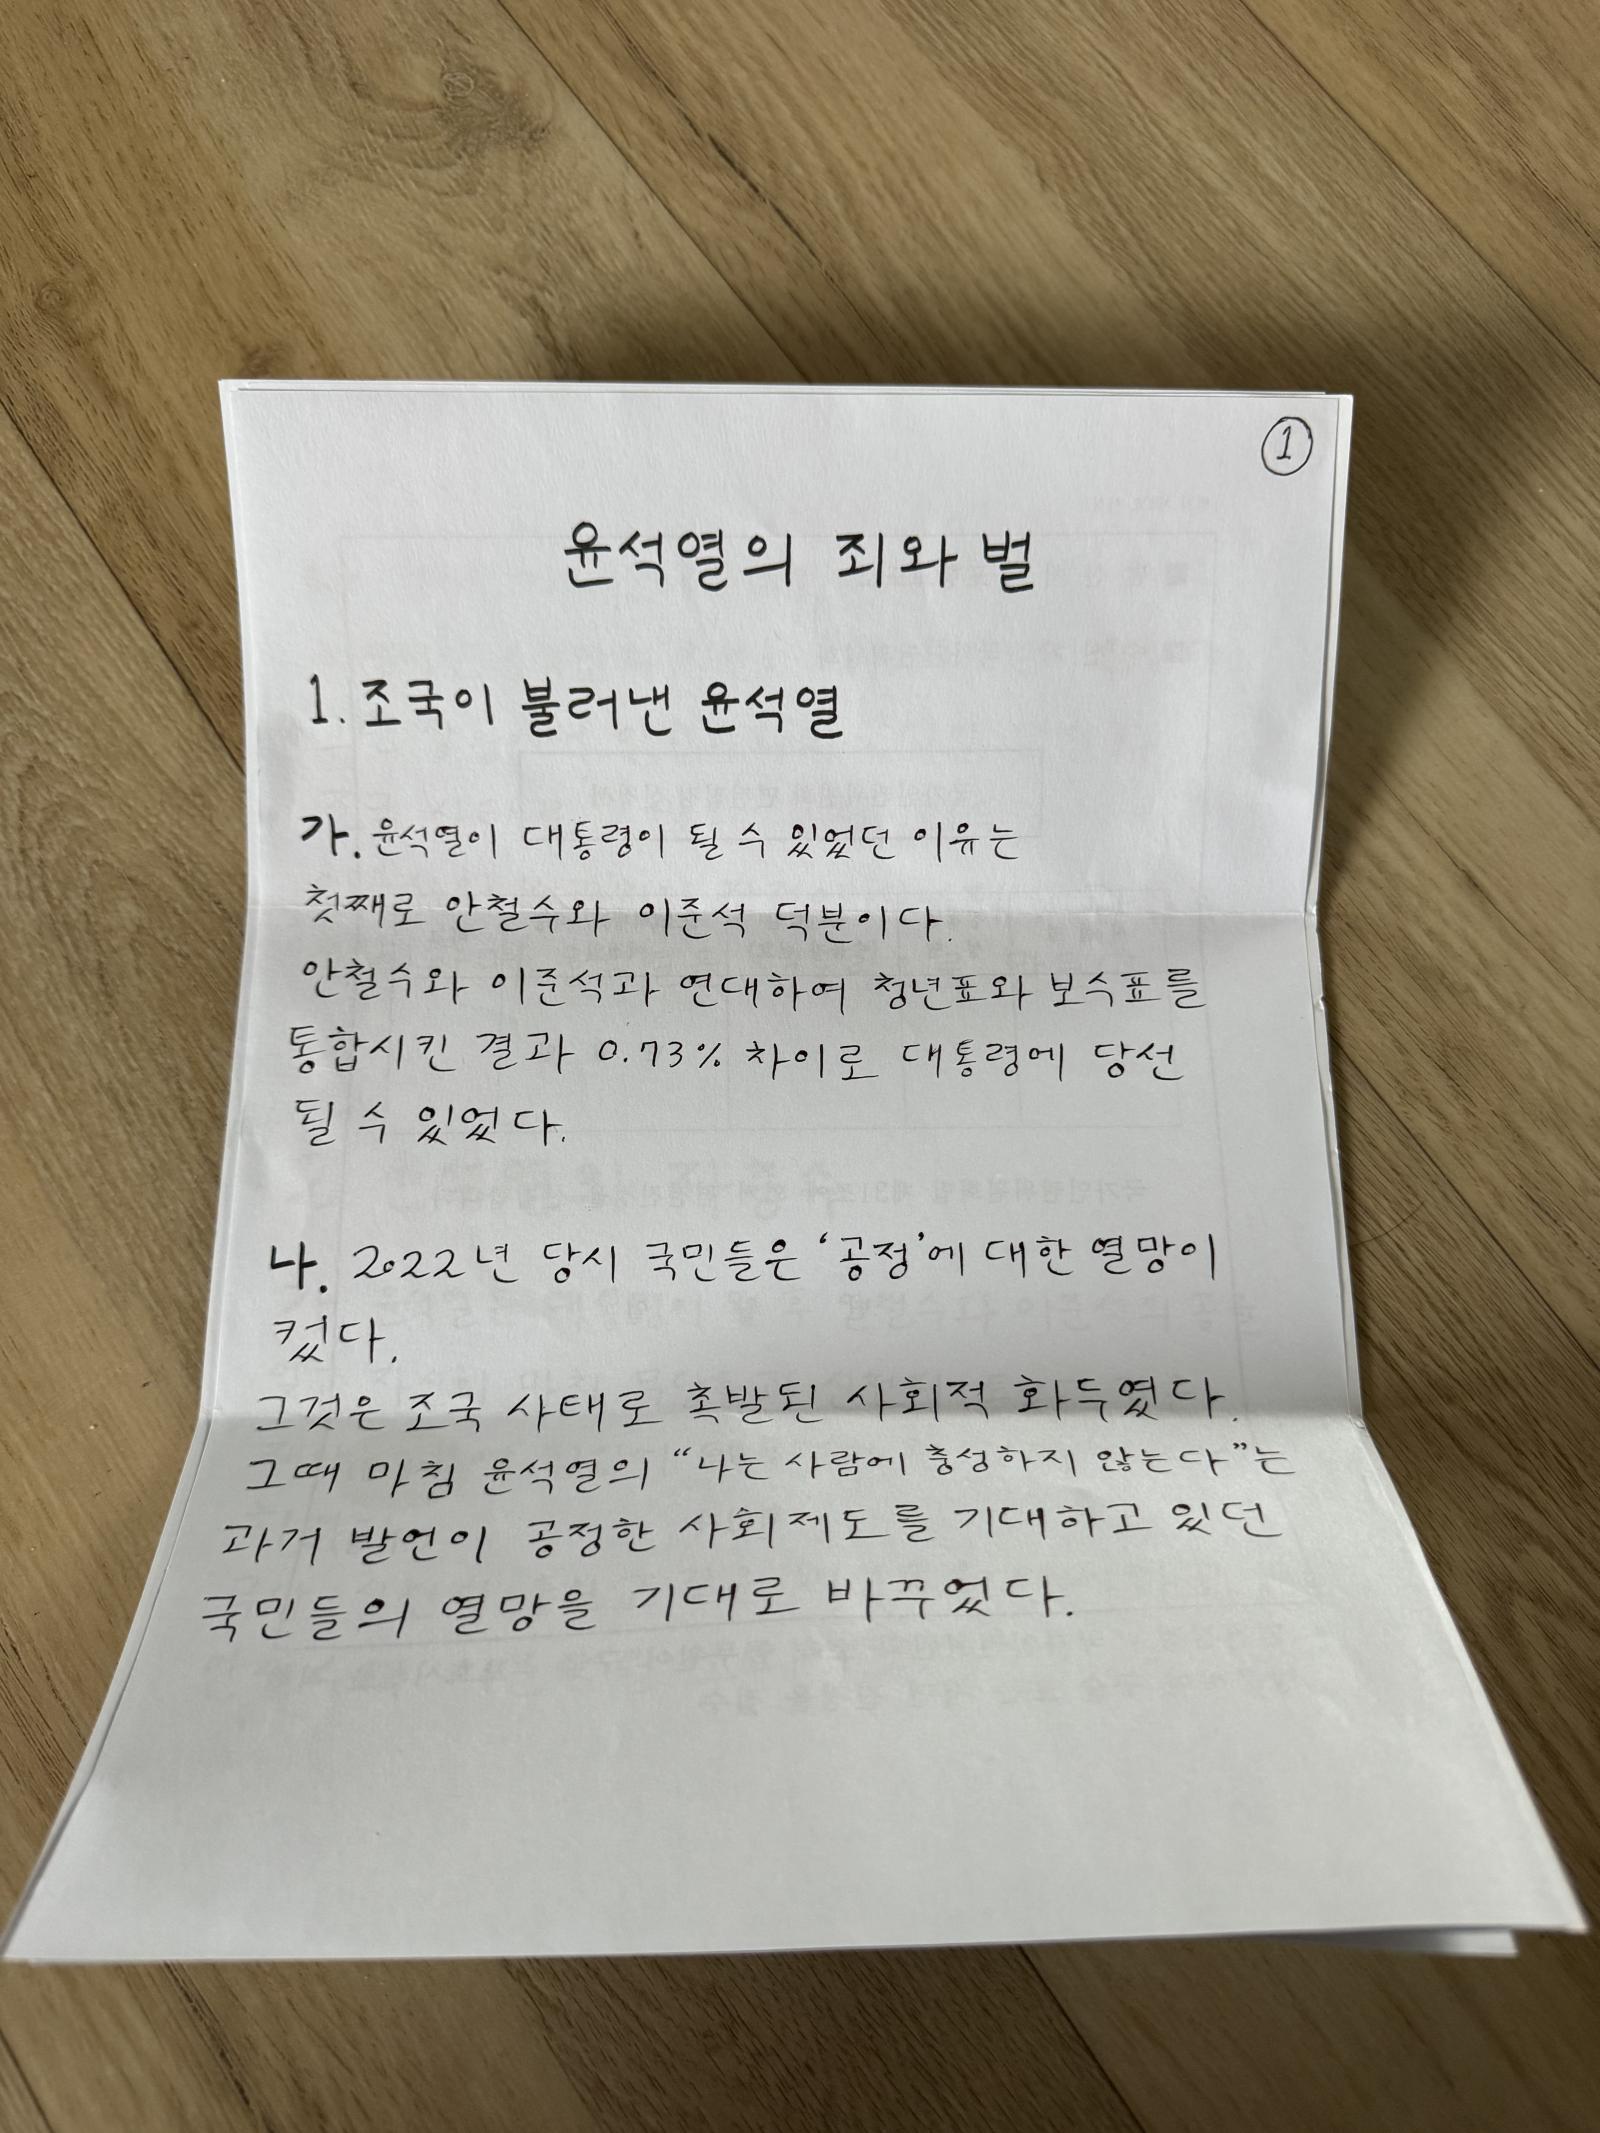 ①
윤석열의 죄와 벌
1. 조국이 불러낸 윤석열
가. 윤석열이 대통령이 될 수 있었던 이유는
첫째로 안철수와 이준석 덕분이다.
안철수와 이준석과 연대하여 청년표와 보수표를
통합시킨 결과 0.73% 차이로 대통령에 당선
될 수 있었다.
나. 2022년 당시 국민들은 ‘공정’에 대한 열망이
컸다.
그것은 조국 사태로 촉발된 사회적 화두였다.
그때 마침 윤석열의 “나는 사람에 충성하지 않는다”는
과거 발언이 공정한 사회제도를 기대하고 있던
국민들의 열망을 기대로 바꾸었다.